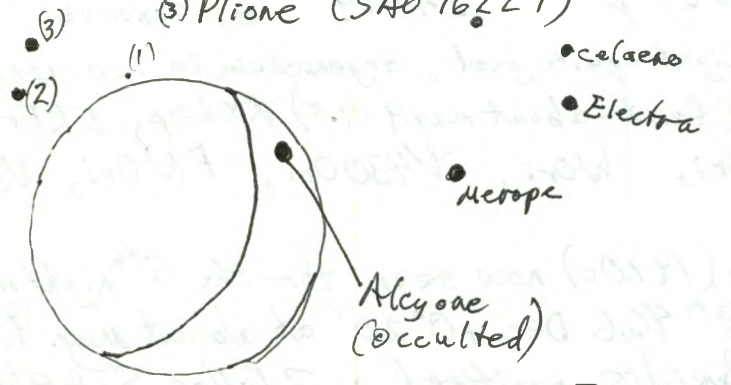 (3) Plione (SAO 76229)
(3)
(1)
(2)
Celaeno
Electra
Merope
Alcyone
(occulted)